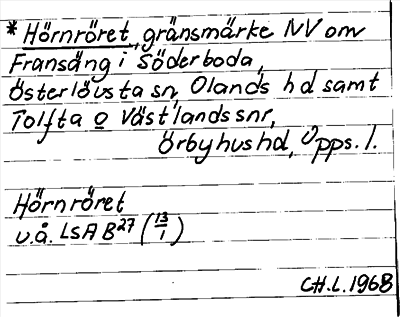 * Hörnröret, gränsmärke NV om
Fransäng i Söderboda,
Österlövsta sn, Olands hd samt
Tolfta o Västlands snr,
Örbyhus hd, Upps. l.
Hörnröret
u.å. LSA B27 (13/1)
CH.L. 1968